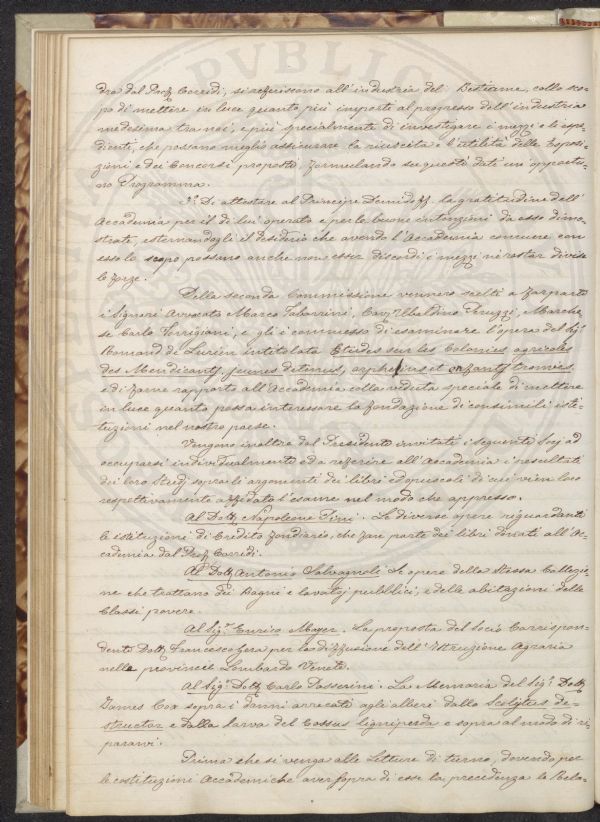 dro dal Prof. Corridi, si referiscono all'industria del Bestiame, collo sco-
po di mettere in luce quanto più importi al progresso dell'industria
medesima tra noi, e più specialmente di investigare i mezzi e li espe-
dienti, che possano meglio assicurare la riuscita e l'utilità delle Esposi-
zioni e dei Concorsi proposti, formulando su questi dati un opportu-
no Programma.
3°. Di attestare al Principe Demidoff la gratitudine dell'
Accademia per il di lui operato e per le buone intenzioni da esso dimo-
strate, esternandogli il desiderio che avendo l'Accademia comune con
esso lo scopo possano anche non esser discordi i mezzi nè restar divise
le forze.
Della seconda Commissione vennero scelti a far parte
i Signori Avvocato Marco Tabarrini, Cav.r Ubaldino Peruzzi, Marche-
se Carlo Torrigiani, e gli è commesso di esaminare l'opera del Sig.r
de Lurieu intitolata Etudes sur les Colonies agricoles
des Mendiants, jeunes detenus, orphelins et enfants trouvés,
ed di farne rapporto all'Accademia colla veduta speciale di mettere
in luce quanto possa interessare la fondazione di consimili isti-
tuzioni nel nostro paese.
Vengono inoltre dal Presidente invitati i seguenti Socj ad
occuparsi individualmente ed a referire all'Accademia i resultati
dei loro Studj sopra li argomenti dei libri ed opuscoli di cui vien loro
respettivamente affidato l'esame nel modo che appresso.
Al Dott. Napoleone Pini. Le diverse opere riguardanti
le istituzioni di Credito fondiario, che fan parte dei libri donati all'Ac-
cademia dal Prof. Corridi.
Al Dott. Antonio Salvagnoli Le opere della stessa Collezio-
ne che trattano dei Bagni e lavatoj pubblici, e delle abitazioni delle
Classi povere.
Al Sig.r Enrico Mayer. La proposta del Socio Corrispon-
dente Dott. Francesco Gera per la diffusione dell'Istruzione Agraria
nelle provincie Lombardo Venete.
Al Sig.r Dott. Carlo Passerini. La Memoria del Sig.r Dott.
James Cox sopra i danni arrecati agli alberi dallo Scolytus de-
structor e dalla larva del Cossus ligniperda e sopra al modo di ri-
pararvi.
Prima che si venga alle Letture di turno, dovendo per
le costituzioni Accademiche aver sopra di esse la precedenza le Rela-